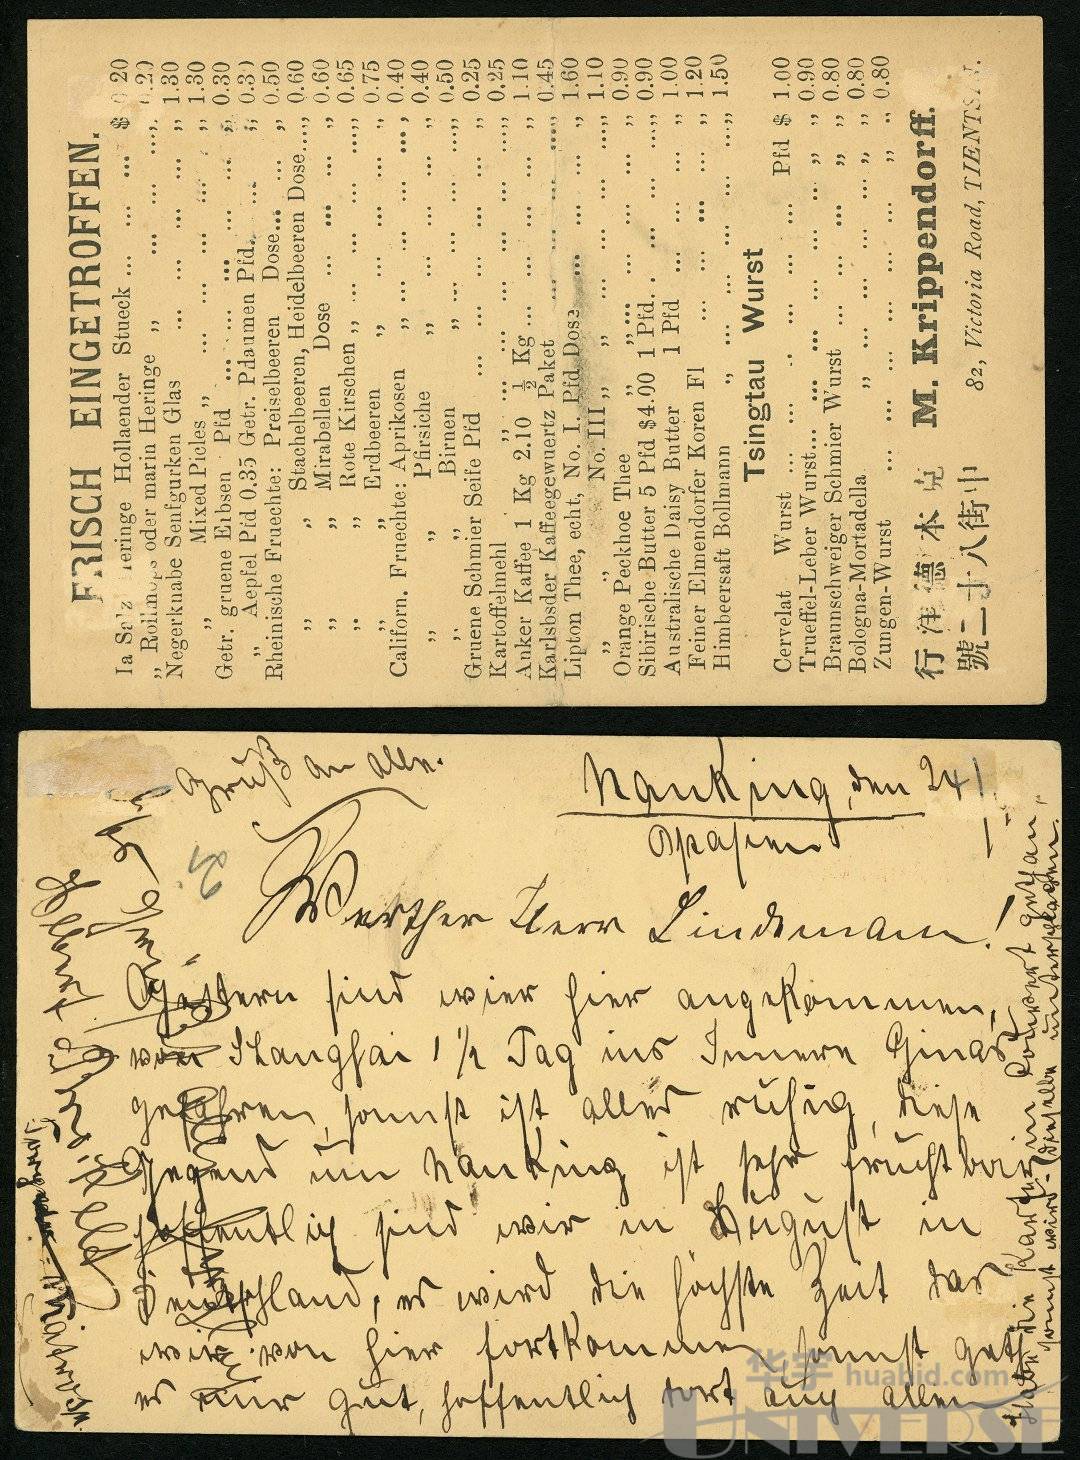 FRISCH EINGETROFFEN.
Ia Salz Heringe Hollaender Stueck ... ... ... $ 0.20
„ Rollmops oder marin Heringe „ ... ... ... „ 0.20
Negerknabe Senfgurken Glas ... ... ... ... „ 1.30
„ Mixed Picles „ ... ... ... ... „ 1.30
Getr. gruene Erbsen Pfd ... ... ... ... „ 0.30
„ Aepfel Pfd 0.35 Getr. Pdaumen Pfd. ... „ 0.30
Rheinische Fruechte: Preiselbeeren Dose... ... „ 0.50
„ „ Stachelbeeren, Heidelbeeren Dose....„ 0.60
„ „ Mirabellen Dose ... ... ... „ 0.60
„ „ Rote Kirschen „ ... ... ... ...„ 0.65
„ „ Erdbeeren „ ... ... ... „ 0.75
Californ. Fruechte: Aprikosen „ ... ... ... „ 0.40
„ „ Pfirsiche „ ... ... ... „ 0.40
„ „ Birnen „ ... ... ... ...„ 0.50
Gruene Schmier Seife Pfd ... ... ... ... „ 0.25
Kartoffelmehl „ ... ... ... ... ...„ 0.25
Anker Kaffee 1 Kg 2.10 ½ Kg ... ... ... ...„ 1.10
Karlsbsder Kaffeegewuertz Paket ... ... ... ...„ 0.45
Lipton Thee, echt, No. I. Pfd Dose ... ... „ 1.60
„ „ „ No. III „ „ ... ... ...„ 1.10
Orange Peckhoe Thee „ „... ... ... „ 0.90
Sibirische Butter 5 Pfd $4.00 1 Pfd. . ... ... ...„ 0.90
Australische Daisy Butter 1 Pfd ... ... ... „ 1.00
Feiner Elmendorfer Koren Fl ... ... ... „ 1.20
Himbeersaft Bollmann „ ... ... ... ...„ 1.50
Tsingtau Wurst
Cervelat Wurst ... ... .. ... ... Pfd $ 1.00
Trueffel-Leber Wurst... ... ... ... ... „ „ 0.90
Braunschweiger Schmier Wurst ... ... ... „ „ 0.80
Bologna-Mortadella „ ... ... ... „ „ 0.80
Zungen-Wurst ... ... ... ... ... „ „ 0.80
行洋德本克 M. Krippendorff.
號二十八街中 82, Victoria Road, TIENTSIN.
Gruß an alle.
Nanking, den 24
Ostasien
Werther Herr Lindemann!
Gestern sind wier hier angekommen,
von Shanghai 1 ½ Tag ins Innere Ginas
gefahren, sonst ist alles ruhig, diese
Gegend um Nanking ist sehr fruchtbar
hoffentlich sind wir in August in
Deutschland, es wird die höchste Zeit das
wir von hier fortkommen, sonst geth
es nur gut, hoffentlich dort auch allen
Habe die Karte in Couvert gethan,
sonst wird dieselbe unterschlagen.
华宇 huabid.com
UNIVERSE